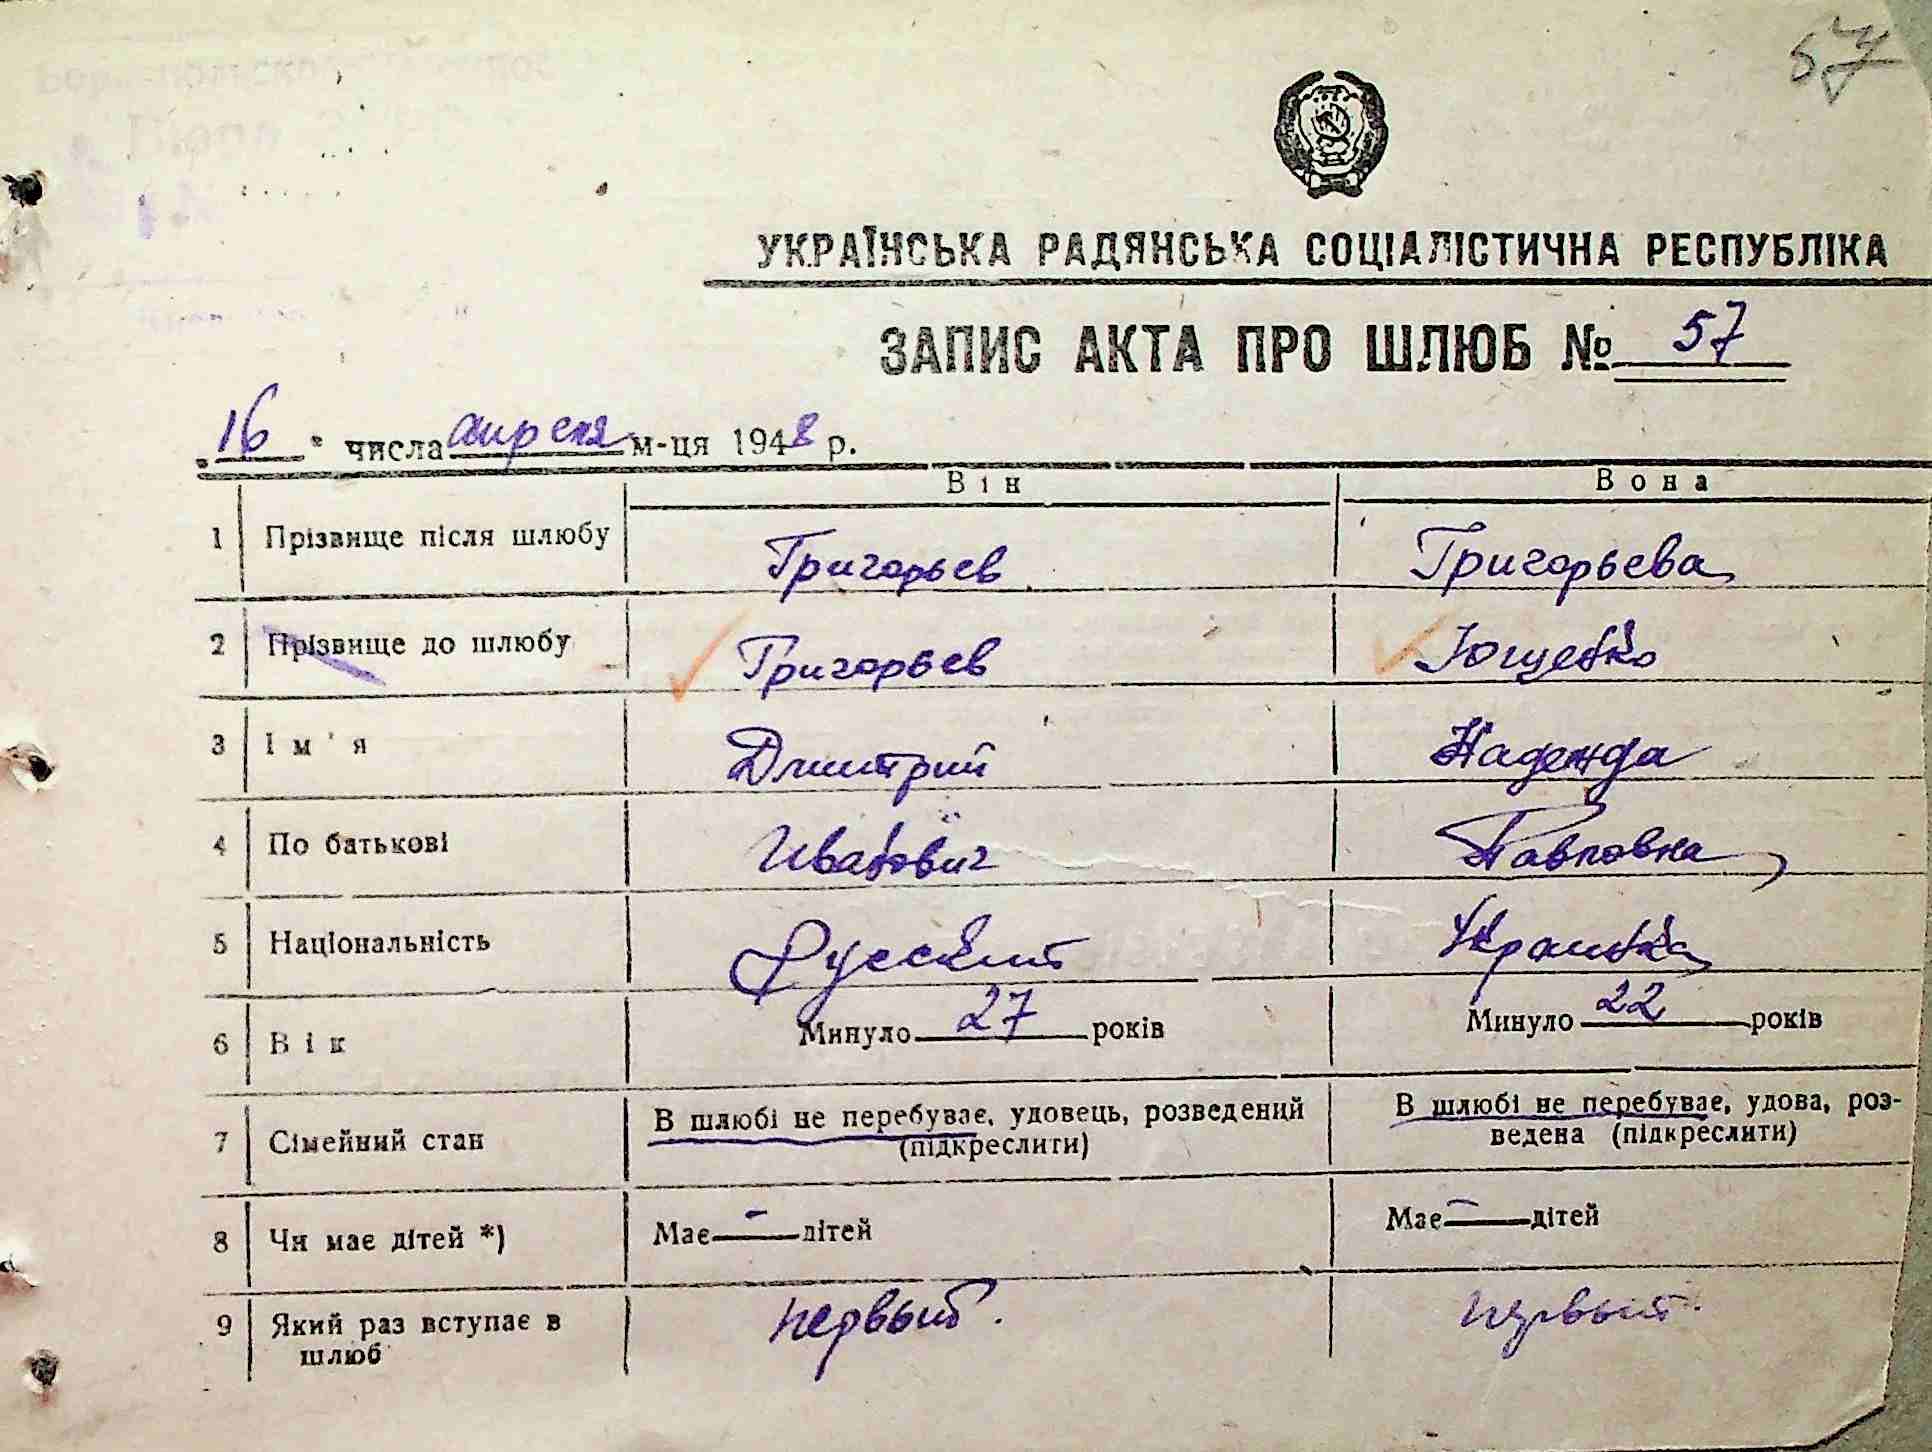 57
УКРАЇНСЬКА РАДЯНСЬКА СОЦІАЛІСТИЧНА РЕСПУБЛІКА
ЗАПИС АКТА ПРО ШЛЮБ № 57
„16" числа апреля м-ця 1948 р.
Він Вона
1 Прізвище після шлюбу Григорьев Григорьева
2 Прізвище до шлюбу Григорьев Ющенко
3 Ім'я Дмитрий Надежда
4 По батькові Иванович Павловна
5 Національність Русский Украинка
6 Вік Минуло 27 років Минуло 22 років
7 Сімейний стан В шлюбі не перебуває, удовець, розведений (підкреслити) В шлюбі не перебуває, удова, роз-ведена (підкреслити)
8 Чи має дітей *) Має - дітей Має - дітей
9 Який раз вступає в шлюб первый. первый.